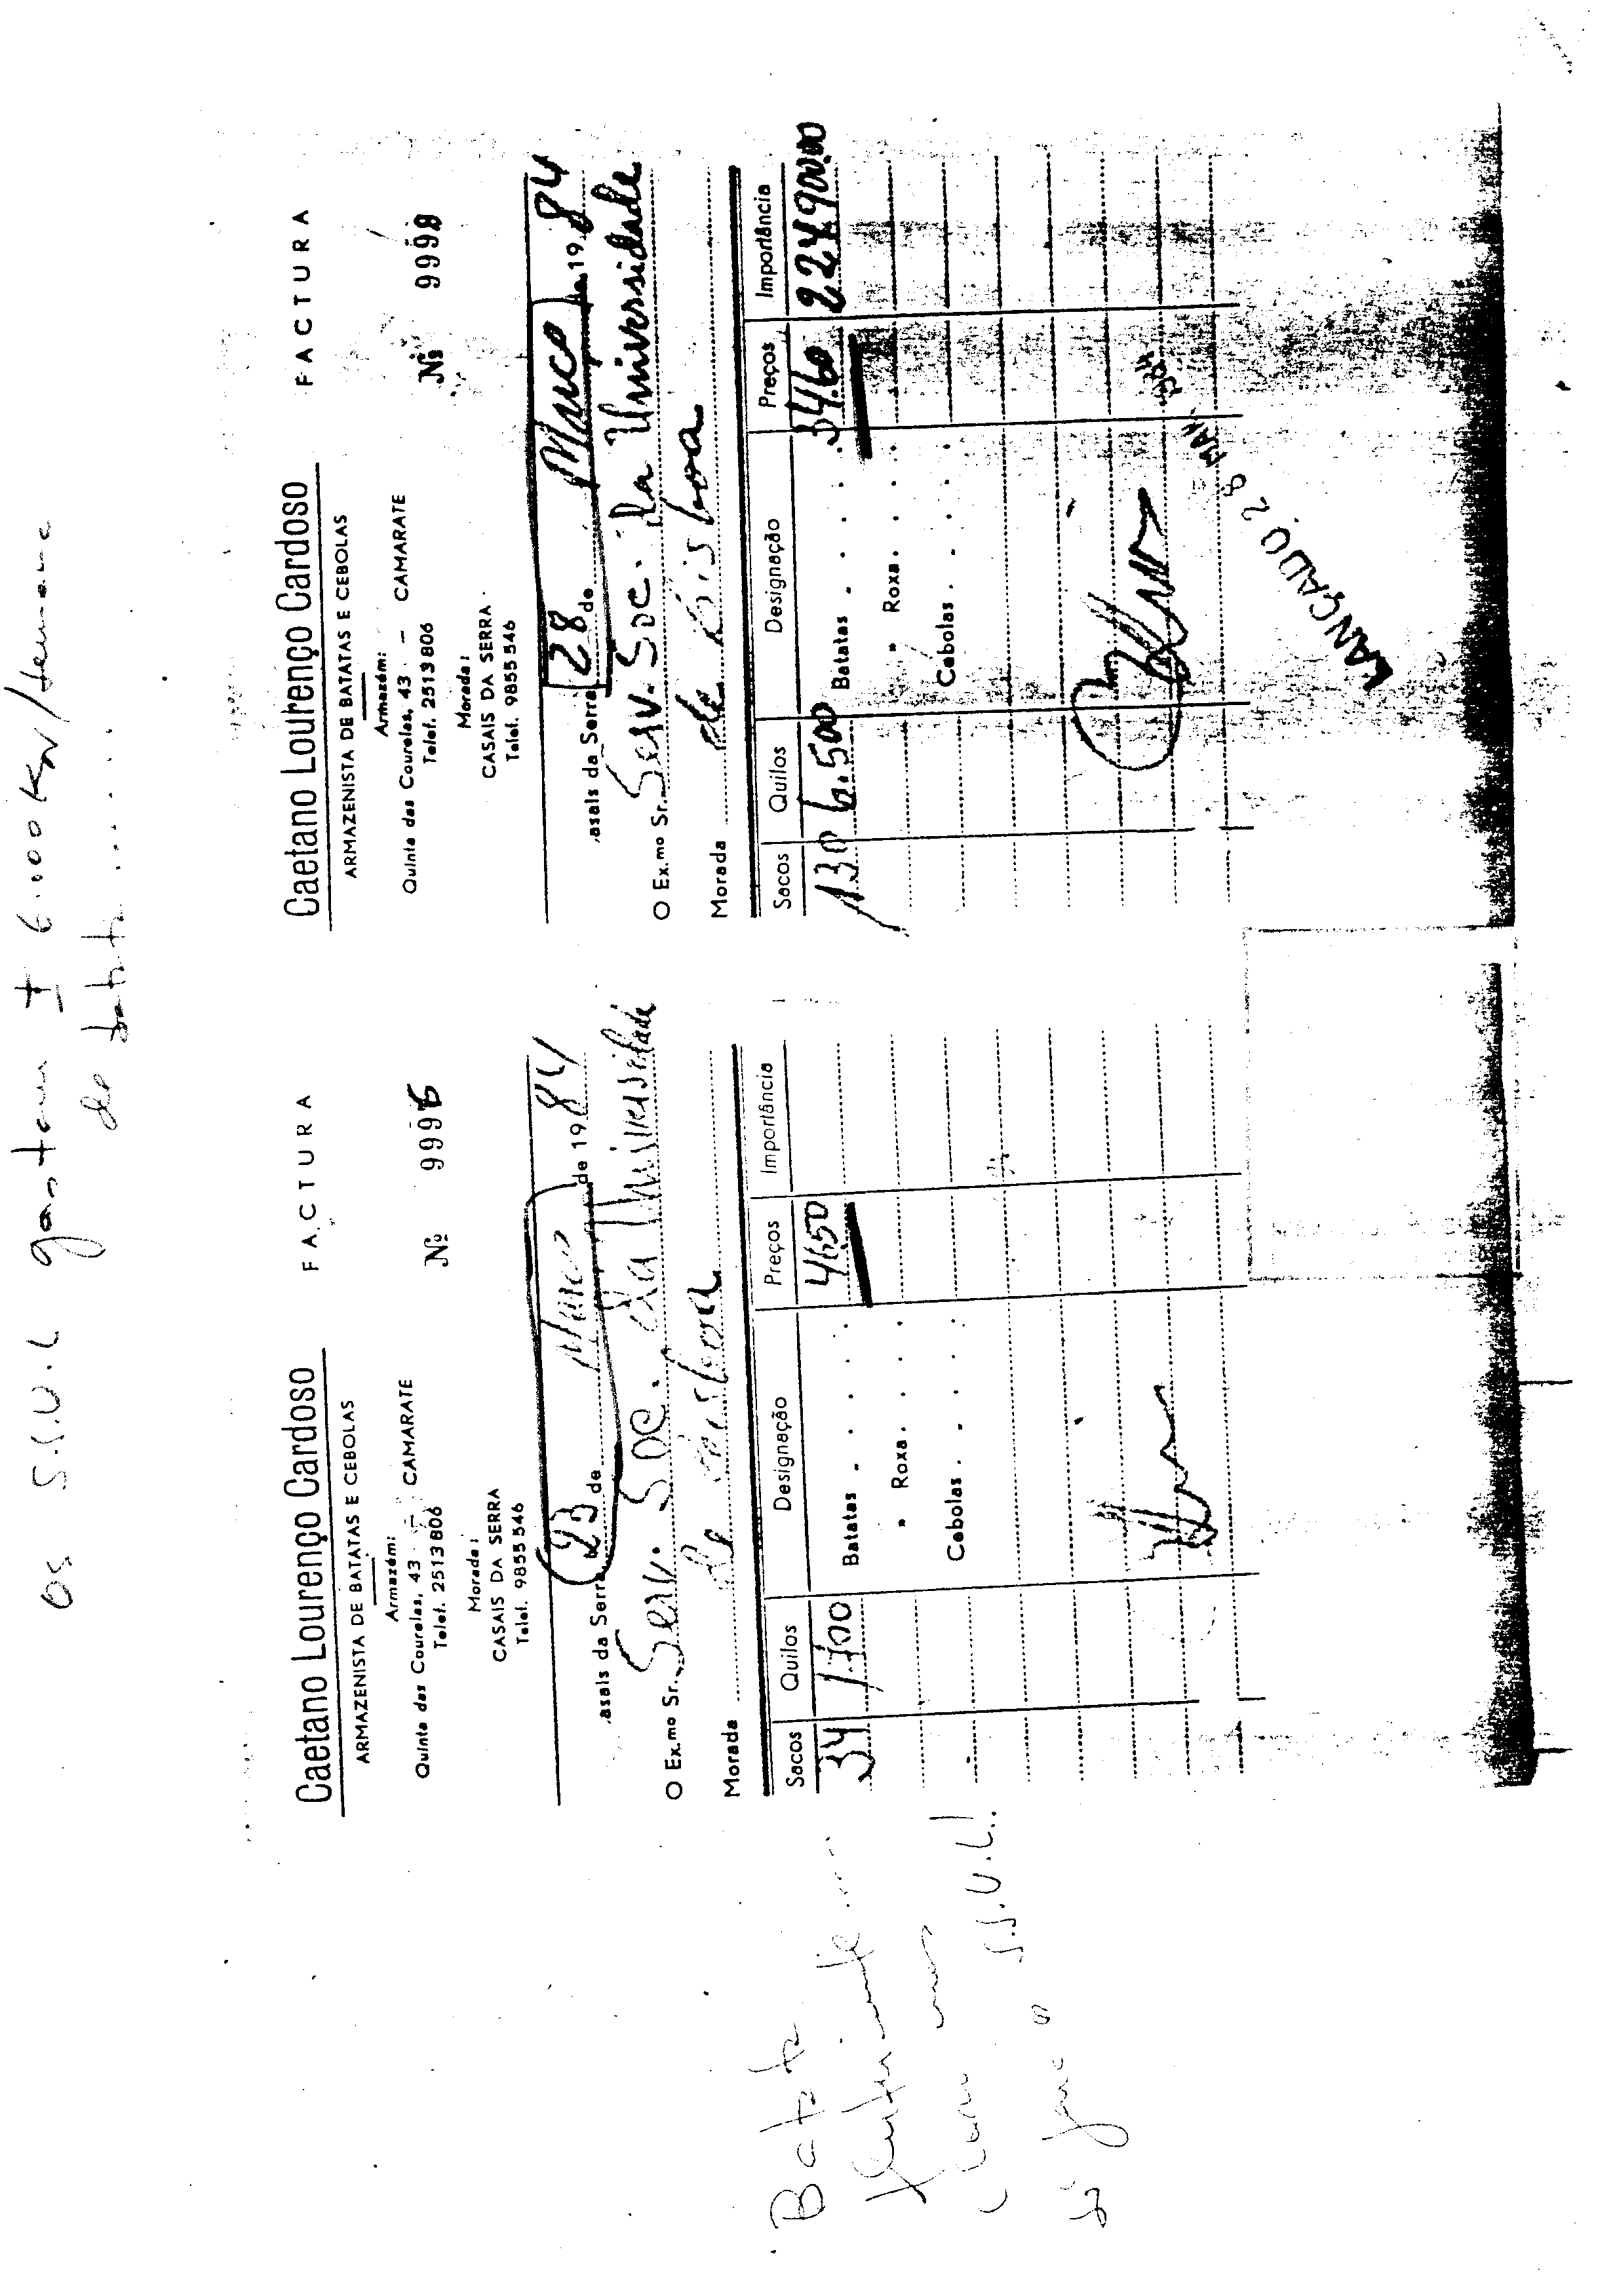 Os S.S.U.L gastam ± 6.000 Kg/semana
de batata ......
Caetano Lourenço Cardoso
FACTURA
ARMAZENISTA DE BATATAS E CEBOLAS
Armazém:
Quinta das Courelas, 43 - CAMARATE
Telef. 2513806
Nº 9996
Morada:
CASAIS DA SERRA
Telef. 9855546
asais da Serra 23 de Março de 1984
O Ex.mo Sr. Serv. Soc. da Universidade
Morada de Lisboa
Sacos Quilos Designação Preços Importância
34 1700 Batatas . . . . 4650
" Roxa . . . .
Cebolas . . . .
Caetano Lourenço Cardoso
FACTURA
ARMAZENISTA DE BATATAS E CEBOLAS
Armazém:
Quinta das Courelas, 43 - CAMARATE
Telef. 2513806
Nº 9998
Morada:
CASAIS DA SERRA
Telef. 9855546
asais da Serra 28 de Março de 1984
O Ex.mo Sr. Serv. Soc. da Universidade
Morada de Lisboa
Sacos Quilos Designação Preços Importância
130 6.500 Batatas . . . . 3460 224900.00
" Roxa . . . .
Cebolas . . . .
LANÇADO 28 MAR 1984
Batata
S.S.U.L!